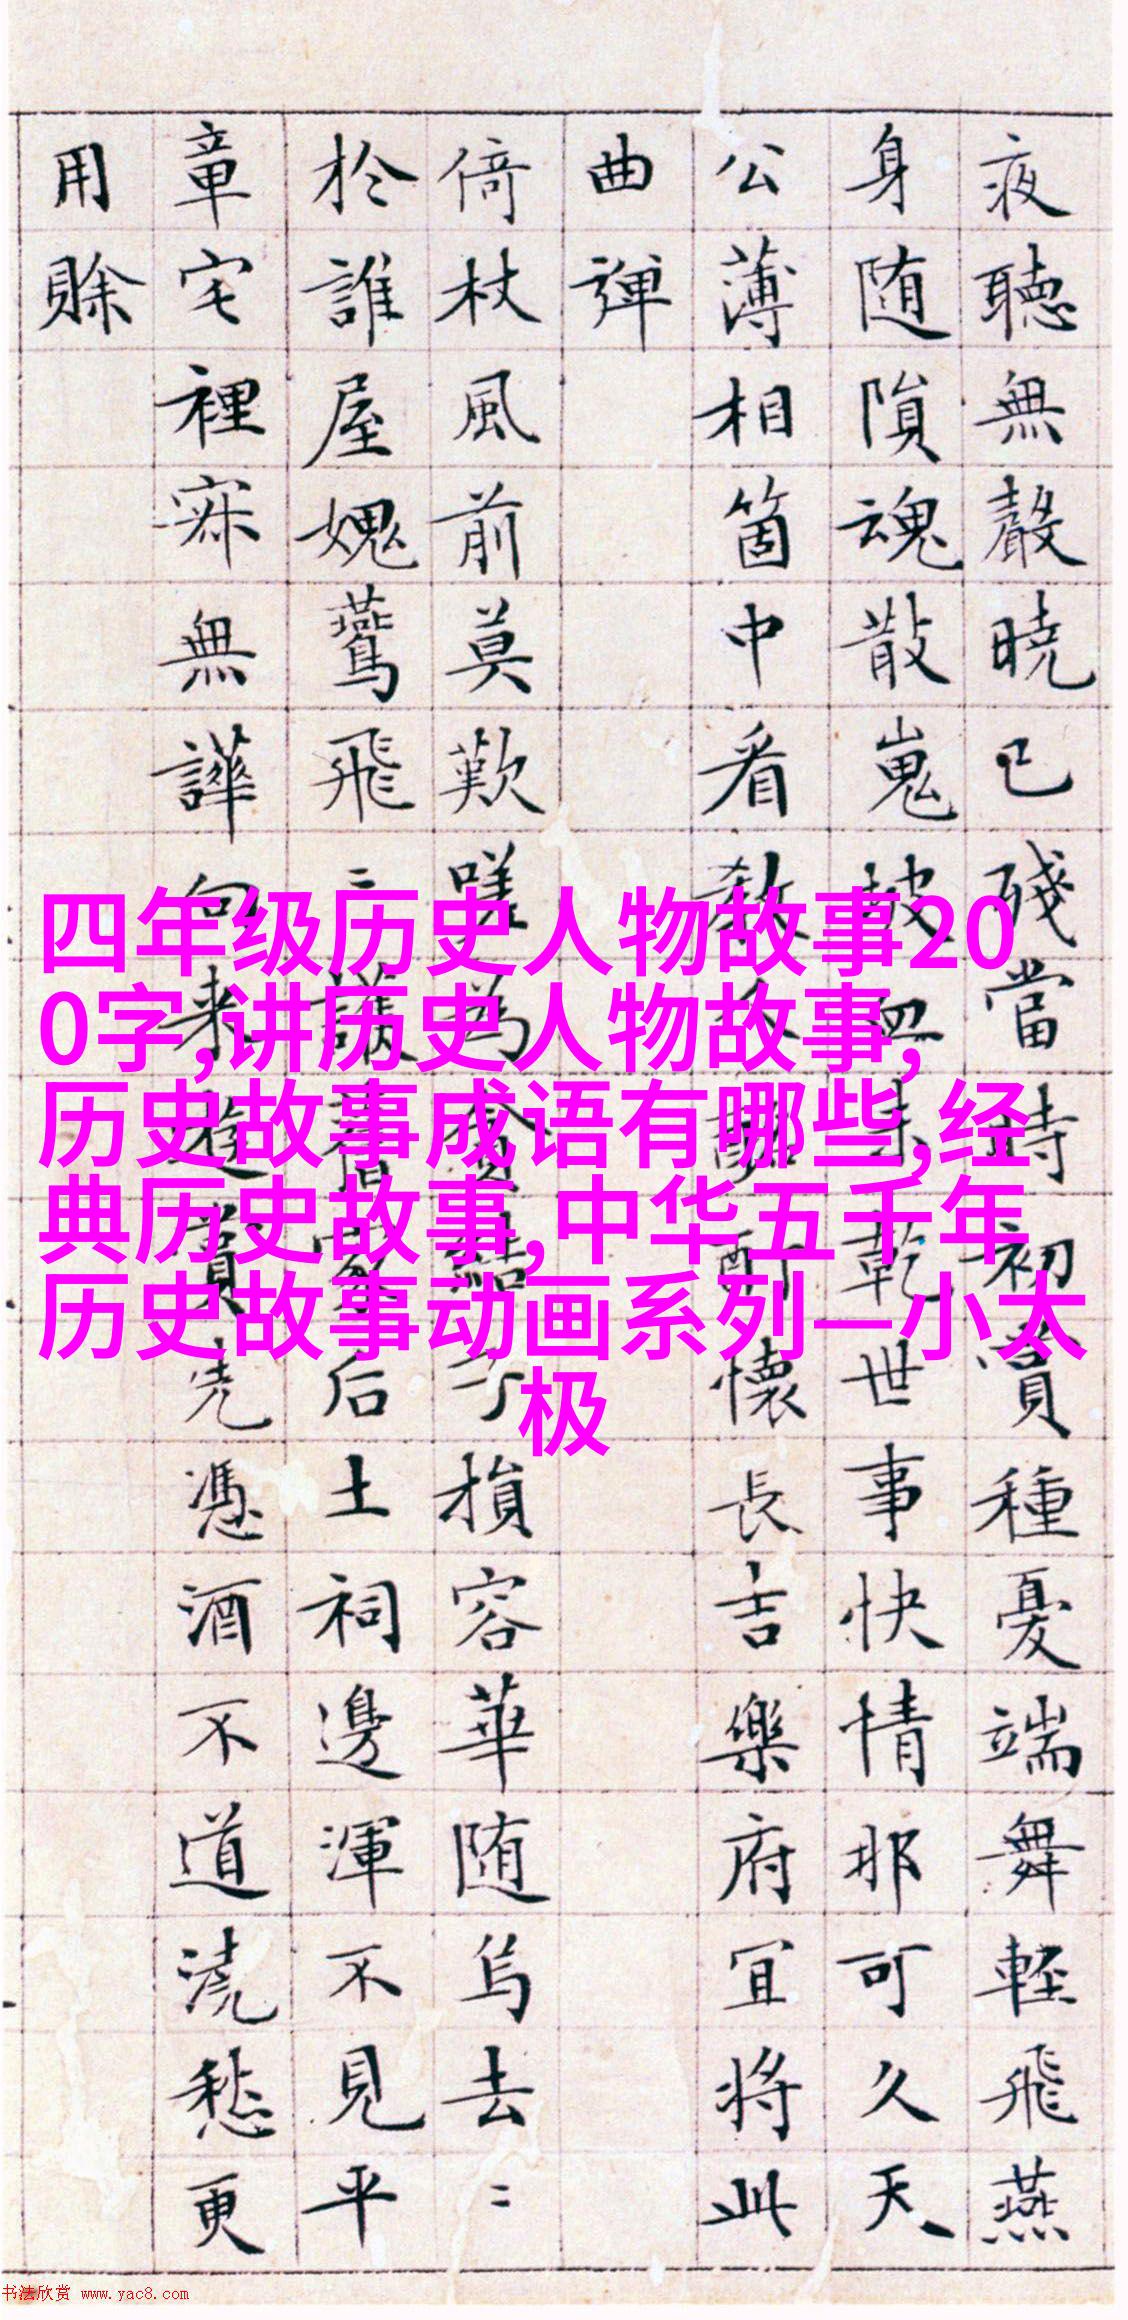 夜聽無聲曉已殘當時初賞種憂端舞輕飛燕
身随隕魂散嵬坡血未乾世事快情那可久天
公薄相箇中看教人勸酌懷長吉樂府宜將此
曲彈
倚杖風前莫歎嗟為貪結子損容華随烏去〻
於誰屋媿鷰飛〻識舊家后土祠邊渾不見平
章宅裡寂無譁向來遊賞先憑酒不道澆愁更
用賒
四年级历史人物故事20
0字,讲历史人物故事,
历史故事成语有哪些,经
典历史故事,中华五千年
历史故事动画系列一小太
极
书法欣赏 www.yac8.com